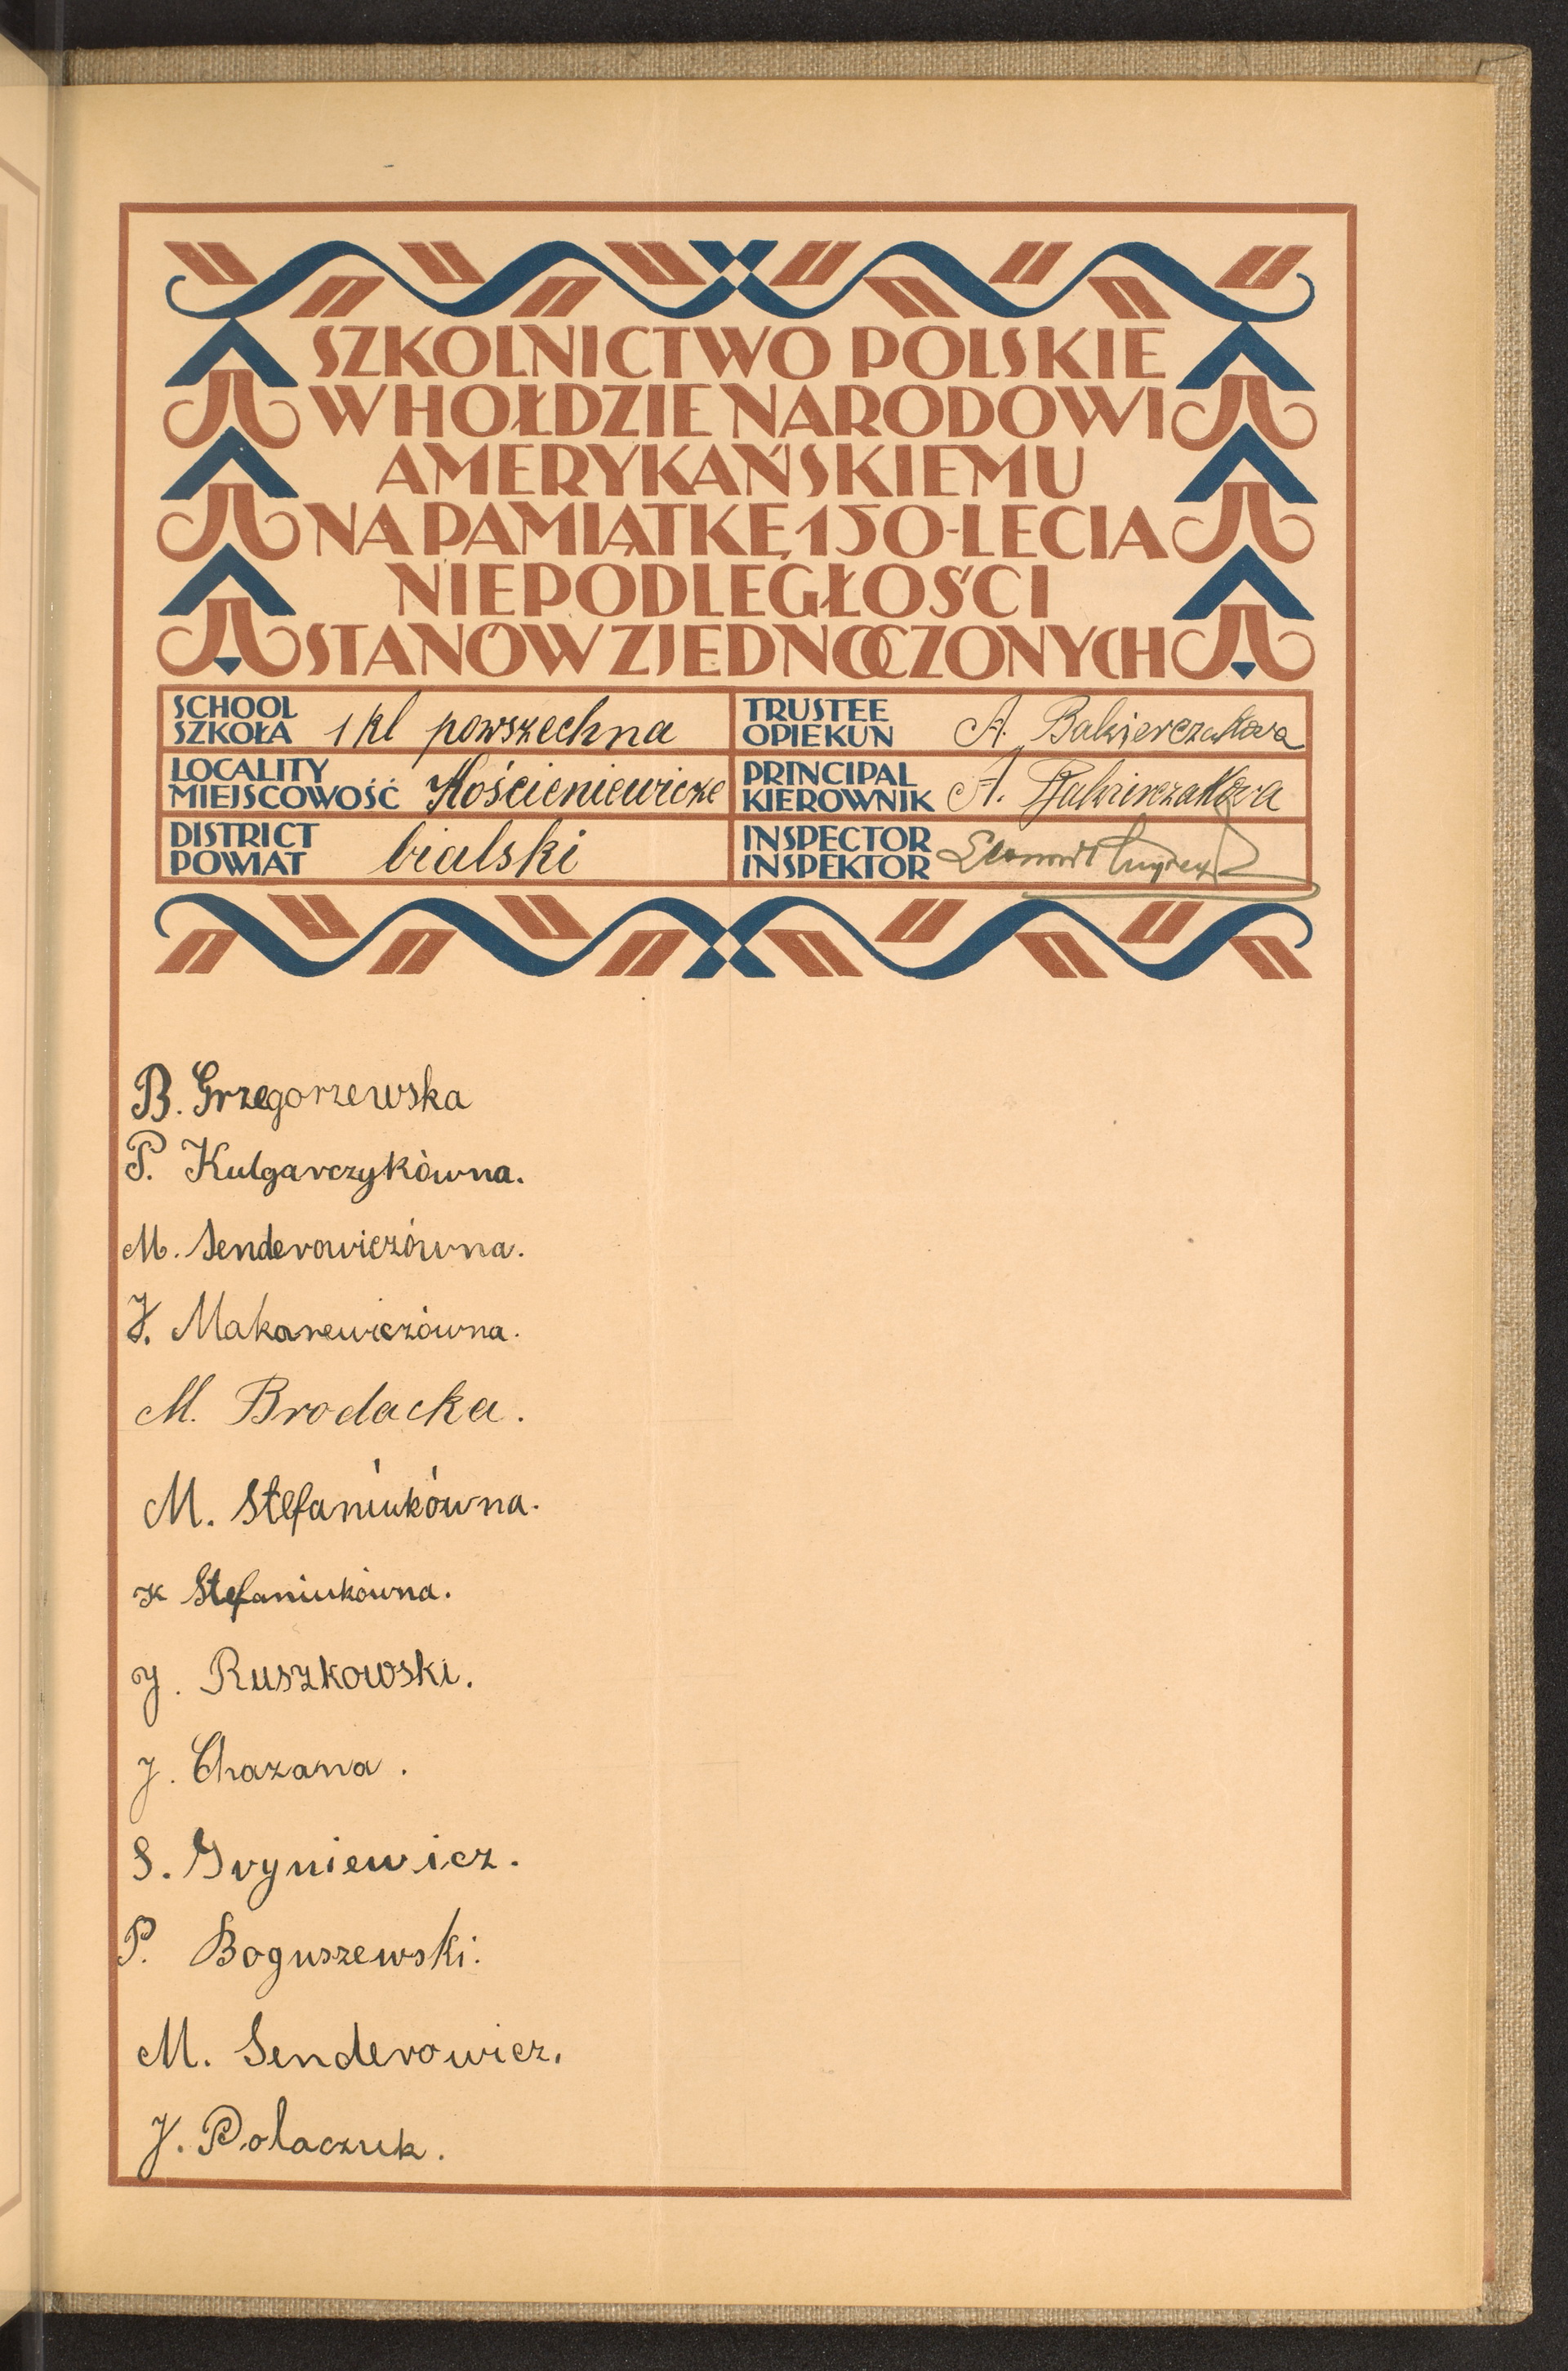 SZKOLNICTWO POLSKIE
W HOŁDZIE NARODOWI
AMERYKAŃSKIEMU
NA PAMIĄTKĘ 150-LECIA
NIEPODLEGŁOŚCI
STANÓW ZJEDNOCZONYCH
SCHOOL
SZKOŁA 1 kl powszechna
TRUSTEE
OPIEKUN A. Bakierczakowa
LOCALITY
MIEJSCOWOŚĆ Kościeniewicze
PRINCIPAL
KIEROWNIK A. Bakierczakowa
DISTRICT
POWIAT bialski
INSPECTOR
INSPEKTOR
B. Grzegorzewska
P. Kulgarczykówna.
M. Senderowiczówna.
J. Makarewiczówna.
M. Brodacka.
M. Stefaniukówna.
K Stefaniukówna.
J. Ruszkowski.
J. Chazana.
S. Gryniewicz.
P. Boguszewski.
M. Senderowicz.
J. Polaczuk.